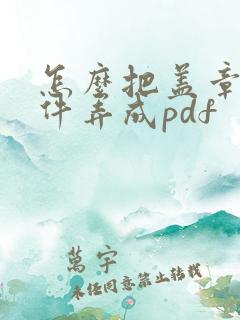 怎麼把盖章
件弄成pdf
萬宇
未经同意禁止转载